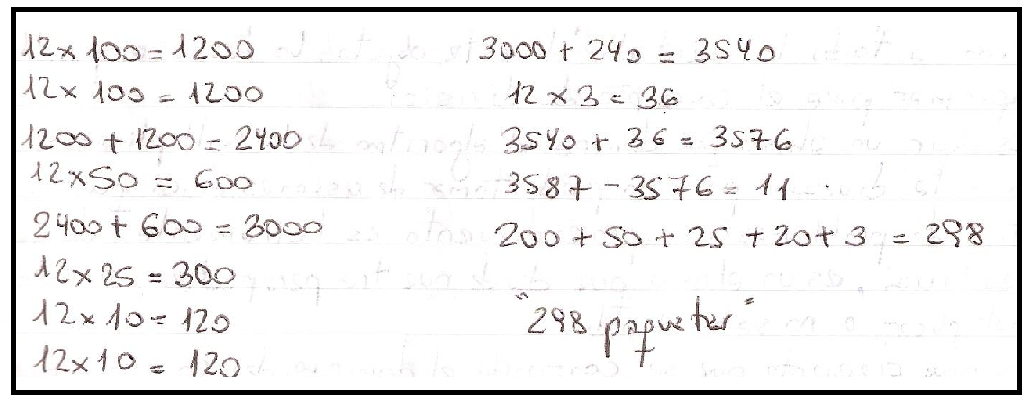 12 x 100 = 1200
12 x 100 = 1200
1200 + 1200 = 2400
12 x 50 = 600
2400 + 600 = 3000
12 x 25 = 300
12 x 10 = 120
12 x 10 = 120
3000 + 240 = 3540
12 x 3 = 36
3540 + 36 = 3576
3587 - 3576 = 11
200 + 50 + 25 + 20 + 3 = 298
"298 paquetes"